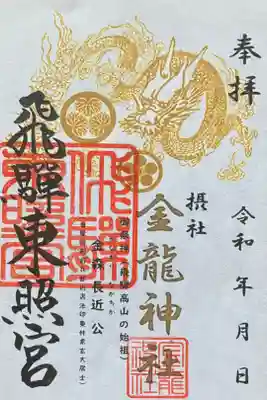 奉拝
令和 年 月 日
摂社
金龍神社
御祭神(飛騨高山の始祖)
金森長近公
飛騨東照宮